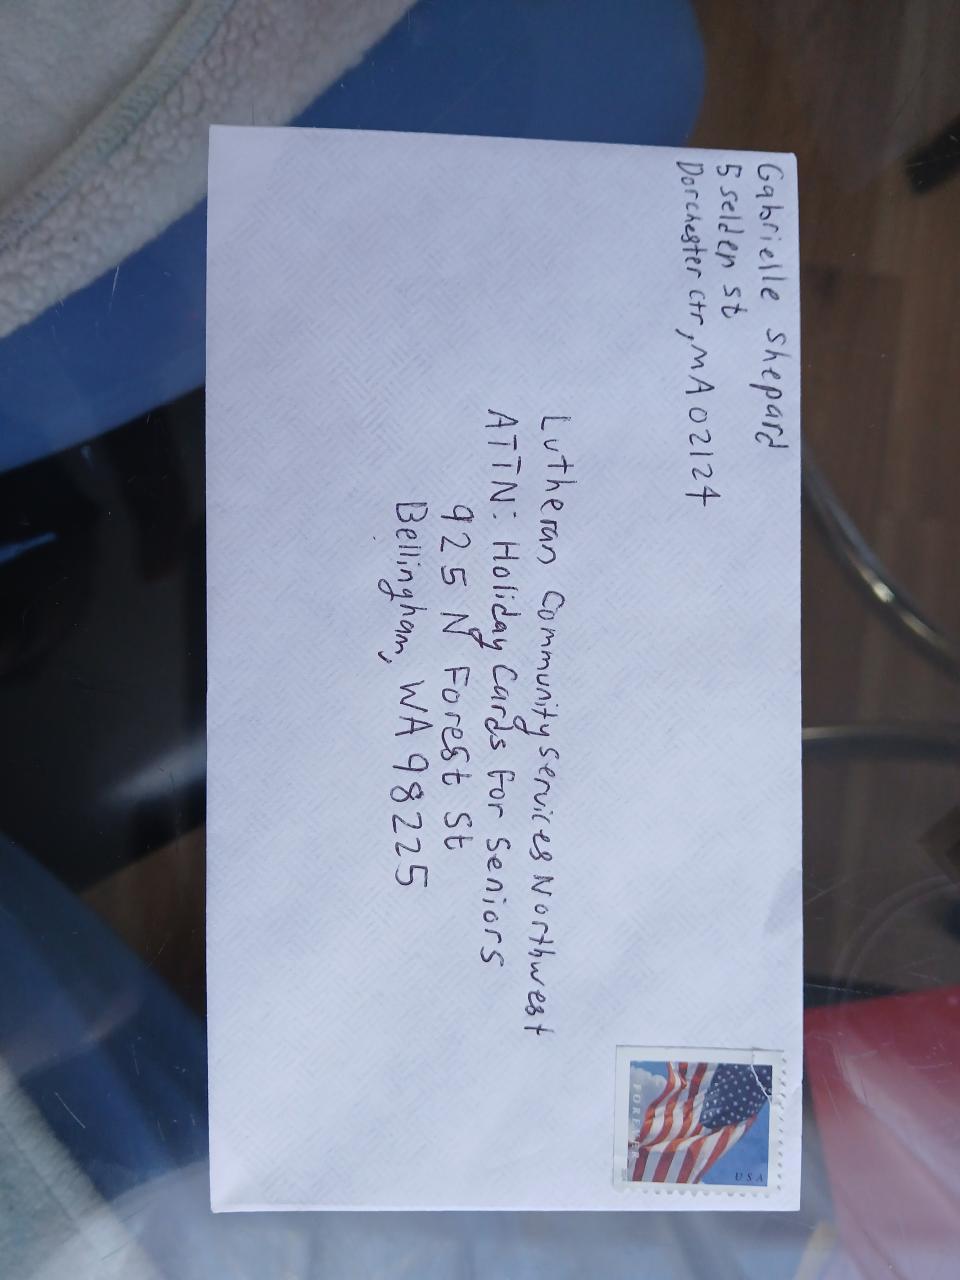 Gabrielle Shepard
5 selden st
Dorchester Ctr, MA 02124
Lutheran Community Services Northwest
ATTN: Holiday Cards For Seniors
925 N Forest St
Bellingham, WA 98225
USA
FOREVER